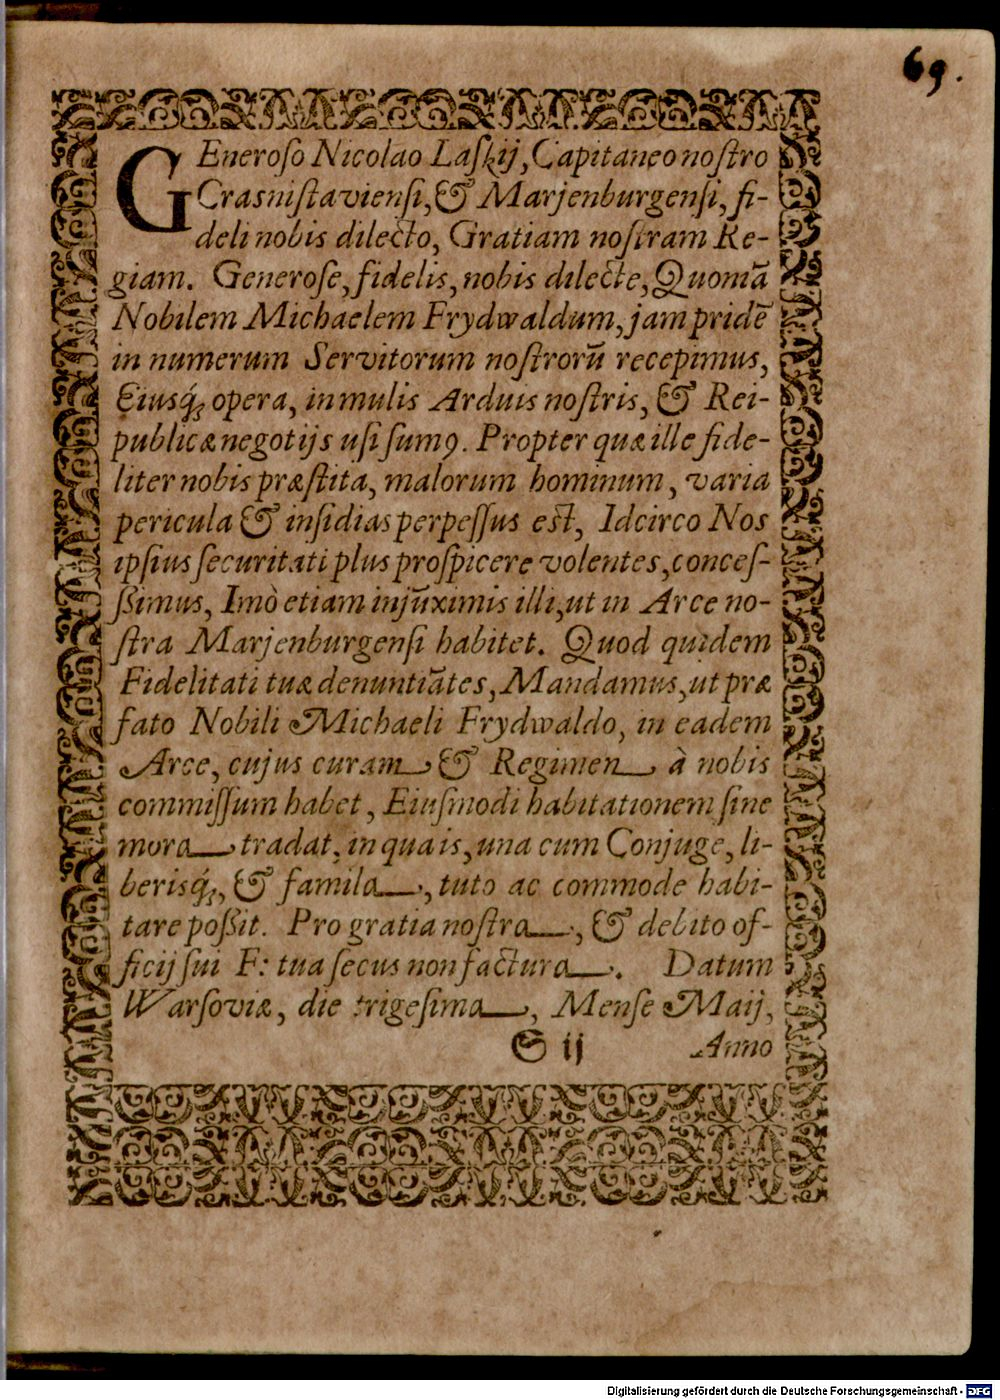 69.
GEneroſo Nicolao Laſkij, Capitaneo noſtro
Crasniſtavienſi, & Marjenburgenſi, fi-
deli nobis dilecto, Gratiam noſtram Re-
giam. Generoſe, fidelis, nobis dilecte, Quoniã
Nobilem Michaelem Frydwaldum, jam pridẽ
in numerum Servitorum noſtrorũ recepimus,
Eiusq́ꝫ opera, in mulis Arduis noſtris, & Rei-
publicæ negotijs uſi ſumꝰ. Propter quæ ille fide-
liter nobis præſtita, malorum hominum, varia
pericula & inſidias perpeſſus eſt, Idcirco Nos
ipſius ſecuritati plus proſpicere volentes, conceſ-
ßimus, Imò etiam injũximis illi, ut in Arce no-
ſtra Marjenburgenſi habitet. Quod quidem
Fidelitati tuæ denuntiãtes, Mandamus, ut præ
fato Nobili Michaeli Frydwaldo, in eadem
Arce, cujus curam & Regimen à nobis
commiſſum habet, Eiuſmodi habitationem ſine
mora tradat, in qua is, una cum Conjuge, li-
berisq́ꝫ, & famila, tuto ac commode habi-
tare poßit. Pro gratia noſtra, & debito of-
ficij ſui F: tua ſecus non factura. Datum
Warſoviæ, die trigeſima, Menſe Maij,
S ij Anno
Digitalisierung gefördert durch die Deutsche Forschungsgemeinschaft - DFG